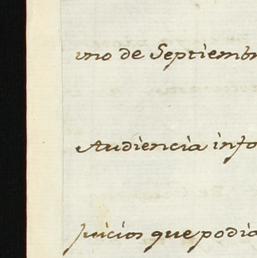 uno de Septiemb
Audiencia info
juicios que podia